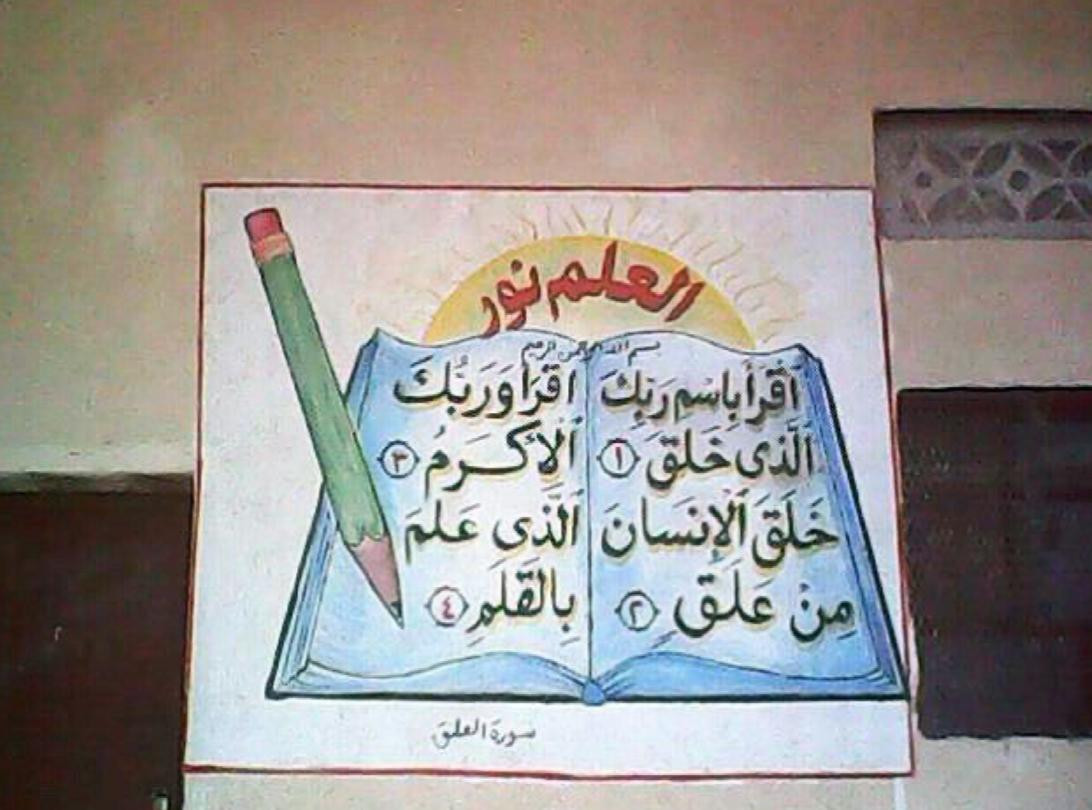 العلم نور
بسم الله الرحمن الرحيم
ٱقْرَأْ بِاسْمِ رَبِّكَ
ٱلَّذى خَلَقَ ١
خَلَقَ ٱلْإِنْسَانَ
مِنْ عَلَق ٢
اقْرَا وَرَبُّكَ
ٱلْاكْرَمُ ٣
ٱلَّذى عَلمَ
بِالْقَلَمِ ٤
سورة العلق